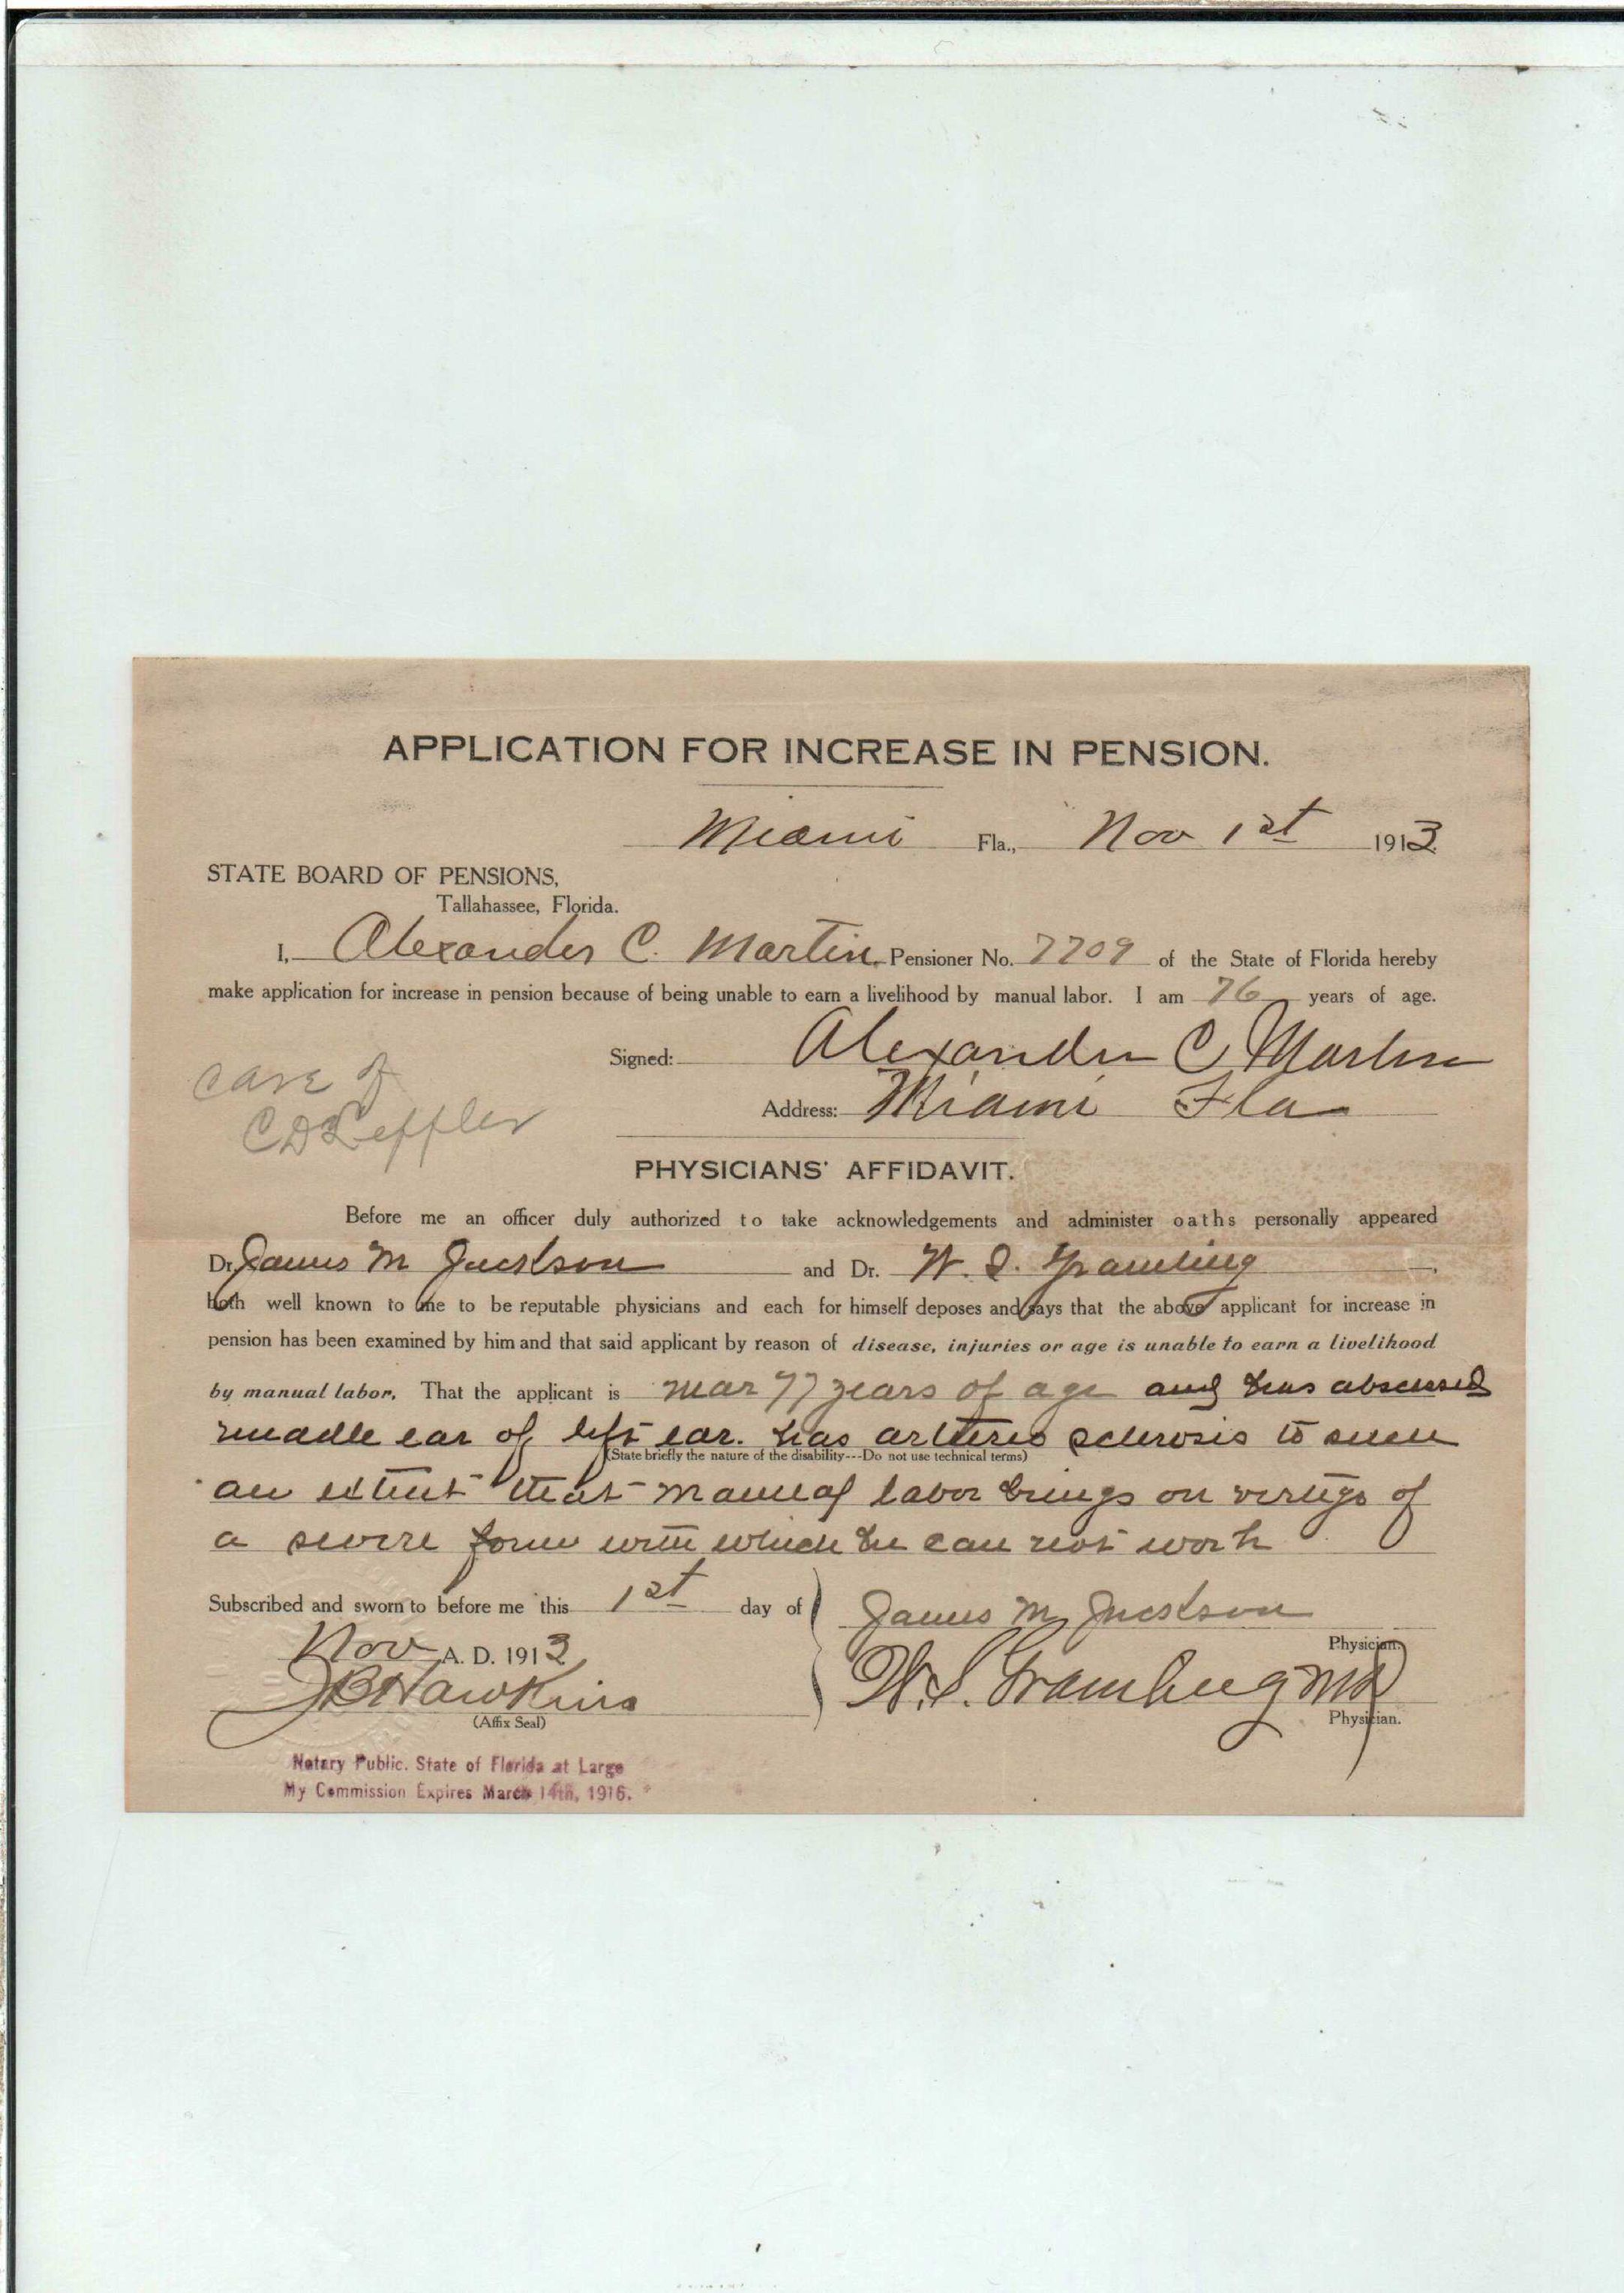 APPLICATION FOR INCREASE IN PENSION.
Miami Fla., Nov 1st 1913
STATE BOARD OF PENSIONS,
Tallahassee, Florida.
I, Alexander C. Martin, Pensioner No. 7709 of the State of Florida hereby
make application for increase in pension because of being unable to earn a livelihood by manual labor. I am 76 years of age.
Signed: Alexander C Martin
care of
C D Leffler
Address: Miami Fla
PHYSICIANS' AFFIDAVIT.
Before me an officer duly authorized to take acknowledgements and administer oaths personally appeared
Dr. James M Jackson and Dr. W. S. Gramling
both well known to me to be reputable physicians and each for himself deposes and says that the above applicant for increase in
pension has been examined by him and that said applicant by reason of disease, injuries or age is unable to earn a livelihood
by manual labor. That the applicant is near 77 years of age and has abscessed
middle ear of left ear. has arterio sclerosis to such
(State briefly the nature of the disability---Do not use technical terms)
an extent that manual labor brings on vertigo of
a severe form with which he can not work
Subscribed and sworn to before me this 1st day of
James M Jackson
Physician.
Nov A. D. 1913
JB Hawkins
(Affix Seal)
W. S. Gramling MD
Physician.
Notary Public. State of Florida at Large
My Commission Expires March 14th, 1916.